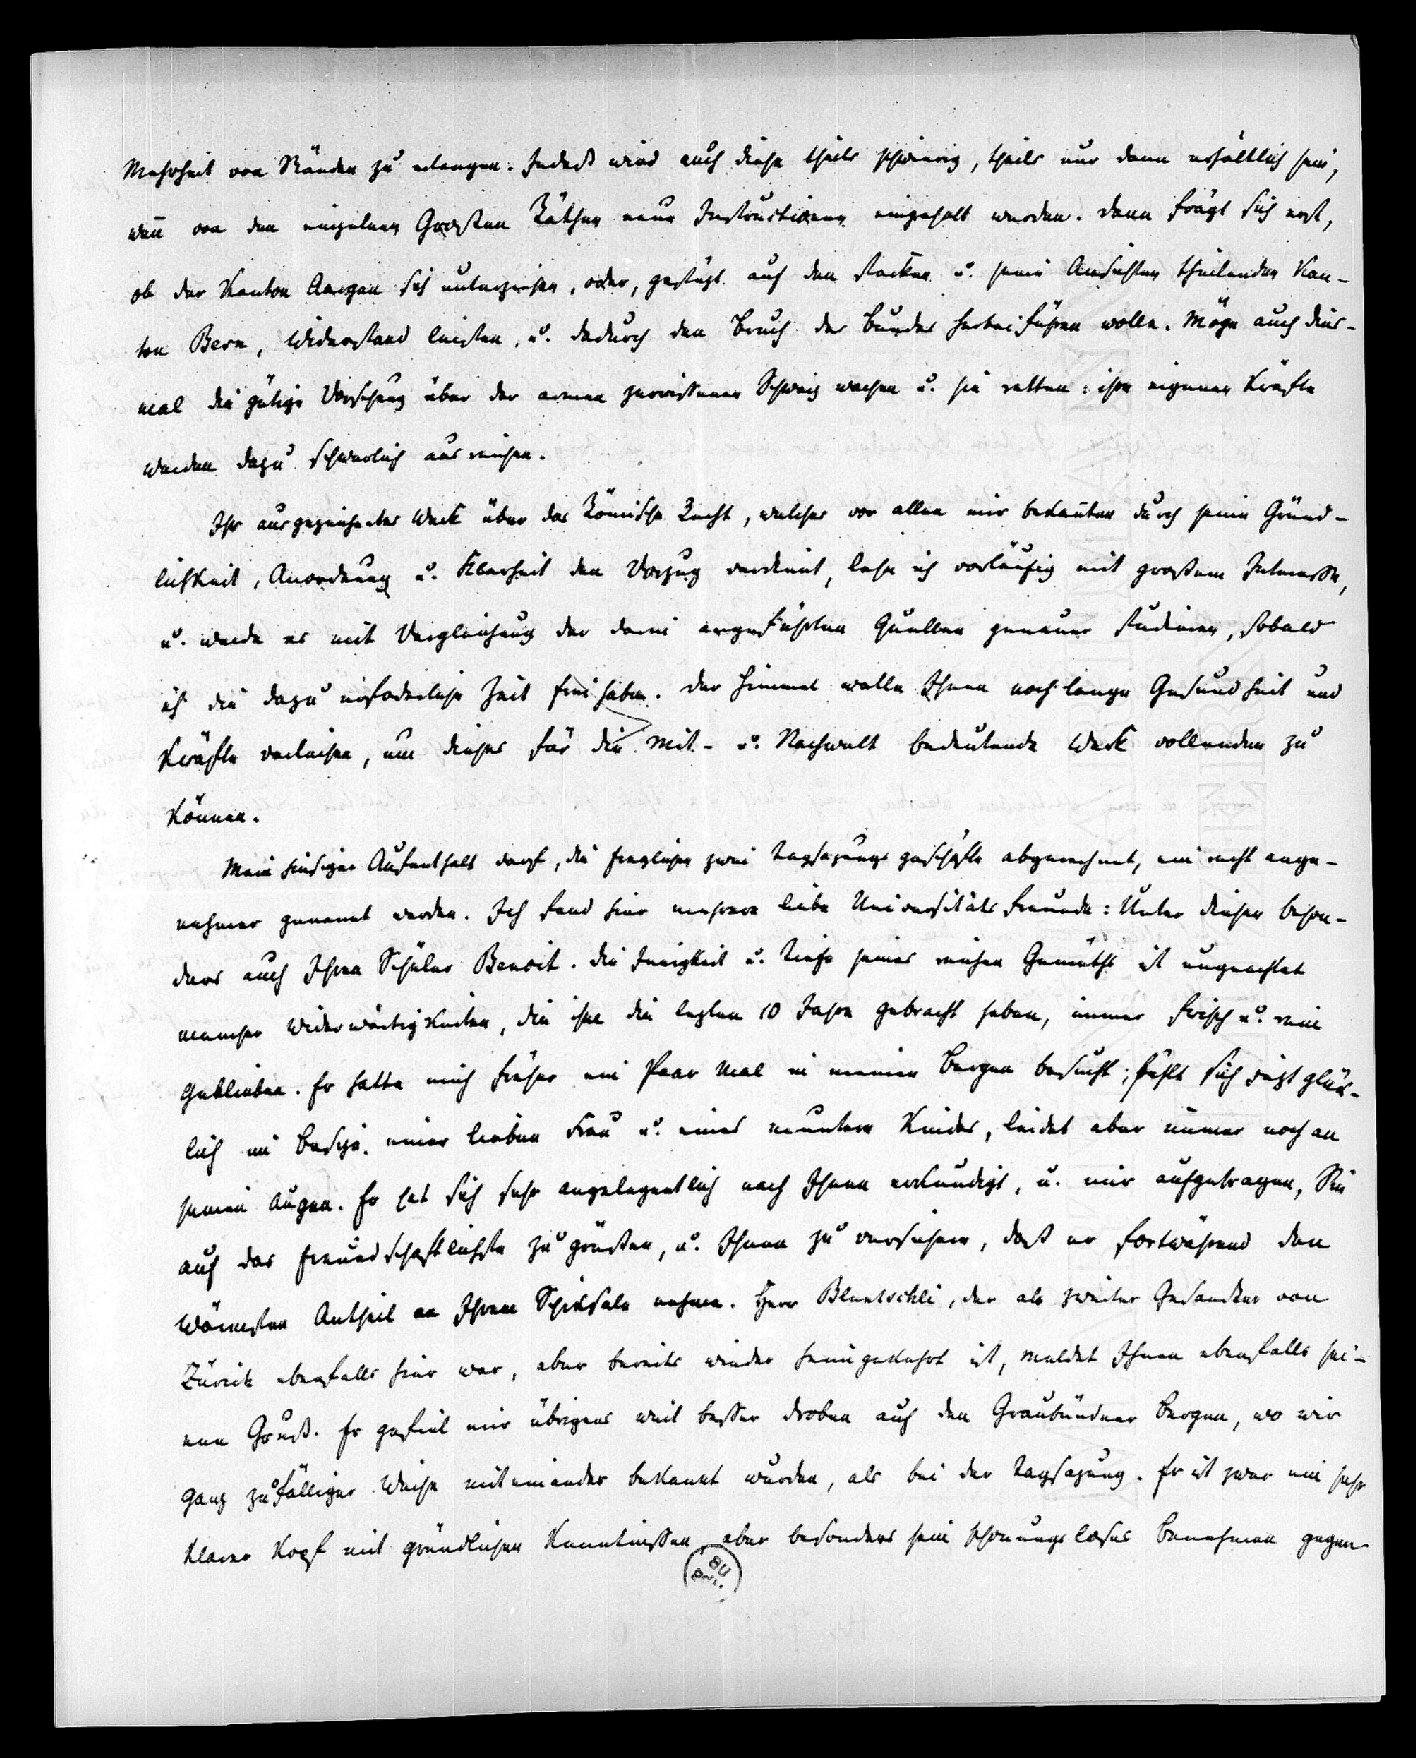 Mehrheit von Ständen zu erlangen. Indeß wird auch diese theils schwierig, theils nur dann erhältlich sein,
wen̄ von den einzelnen Großen Räthen neue Instructionen eingeholt werden. Dann frägt sich erst,
ob der Kanton Aargau sich unterziehen, oder, gestüzt auf den starken u. seine Ansichten theilenden Kan-
ton Bern, Widerstand leisten, u. dadurch den Bruch des Bundes herbeiführen wolle. Möge auch dies-
mal die gütige Vorsehung über der armen zerrissenen Schweiz wachen u. sie retten: ihre eigenen Kräfte
werden dazu schwerlich ausreichen.
Ihr ausgezeichnetes Werk über das Römische Recht, welches vor allen mir bekannten durch seine Gründ-
lichkeit, Anordnung u. Klarheit den Vorzug verdient, lese ich vorläufig mit großem Interesse,
u. werde es mit Vergleichung der darin angeführten Quellen genauer studieren, sobald
ich die dazu erforderliche Zeit frei habe. Der Himmel wolle Ihnen noch lange Gesundheit und
Kräfte verleihen, um dieses für die Mit- u. Nachwelt bedeutende Werk vollenden zu
können.
Mein hiesiger Aufenthalt darf, die Tagsazungsgeschäfte abgerechnet, ein recht ange-
nehmer genannt werden. Ich fand hier mehrere liebe Universitäts Freunde: Unter diesen beson-
ders auch Ihren Schüler Benoit. Die Innigkeit u. Tiefe seines reichen Gemüths ist ungeachtet
mancher Widerwärtigkeiten, die ihm die lezten 10 Jahre gebracht haben, immer frisch u. rein
geblieben. Er hatte mich früher ein Paar Mal in meinen Bergen besucht; fühlt sich jezt glük-
lich im Besize einer lieben Frau u. eines muntern Kindes, leidet aber immer noch an
seinen Augen. Er hat sich sehr angelegentlich nach Ihnen erkundigt, u. mir aufgetragen, Sie
auf das freundschaftlichste zu grüßen, u. Ihnen zu versichern, daß er fortwährend den
wärmsten Antheil an Ihrem Schiksale nehme. Herr Bluntschli, der als zweiter Gesandter von
Zürich ebenfalls hier war, aber bereits wieder heimgekehrt ist, meldet Ihnen ebenfalls sei-
nen Gruß. Er gefiel mir übrigens weit besser droben auf den Graubündner Bergen, wo wir
ganz zufälliger Weise miteinander bekannt wurden, als bei der Tagsazung. Er ist zwar ein sehr
klarer Kopf mit gründlichen Kenntnissen, aber besonders sein schonungsloses Benehmen gegen